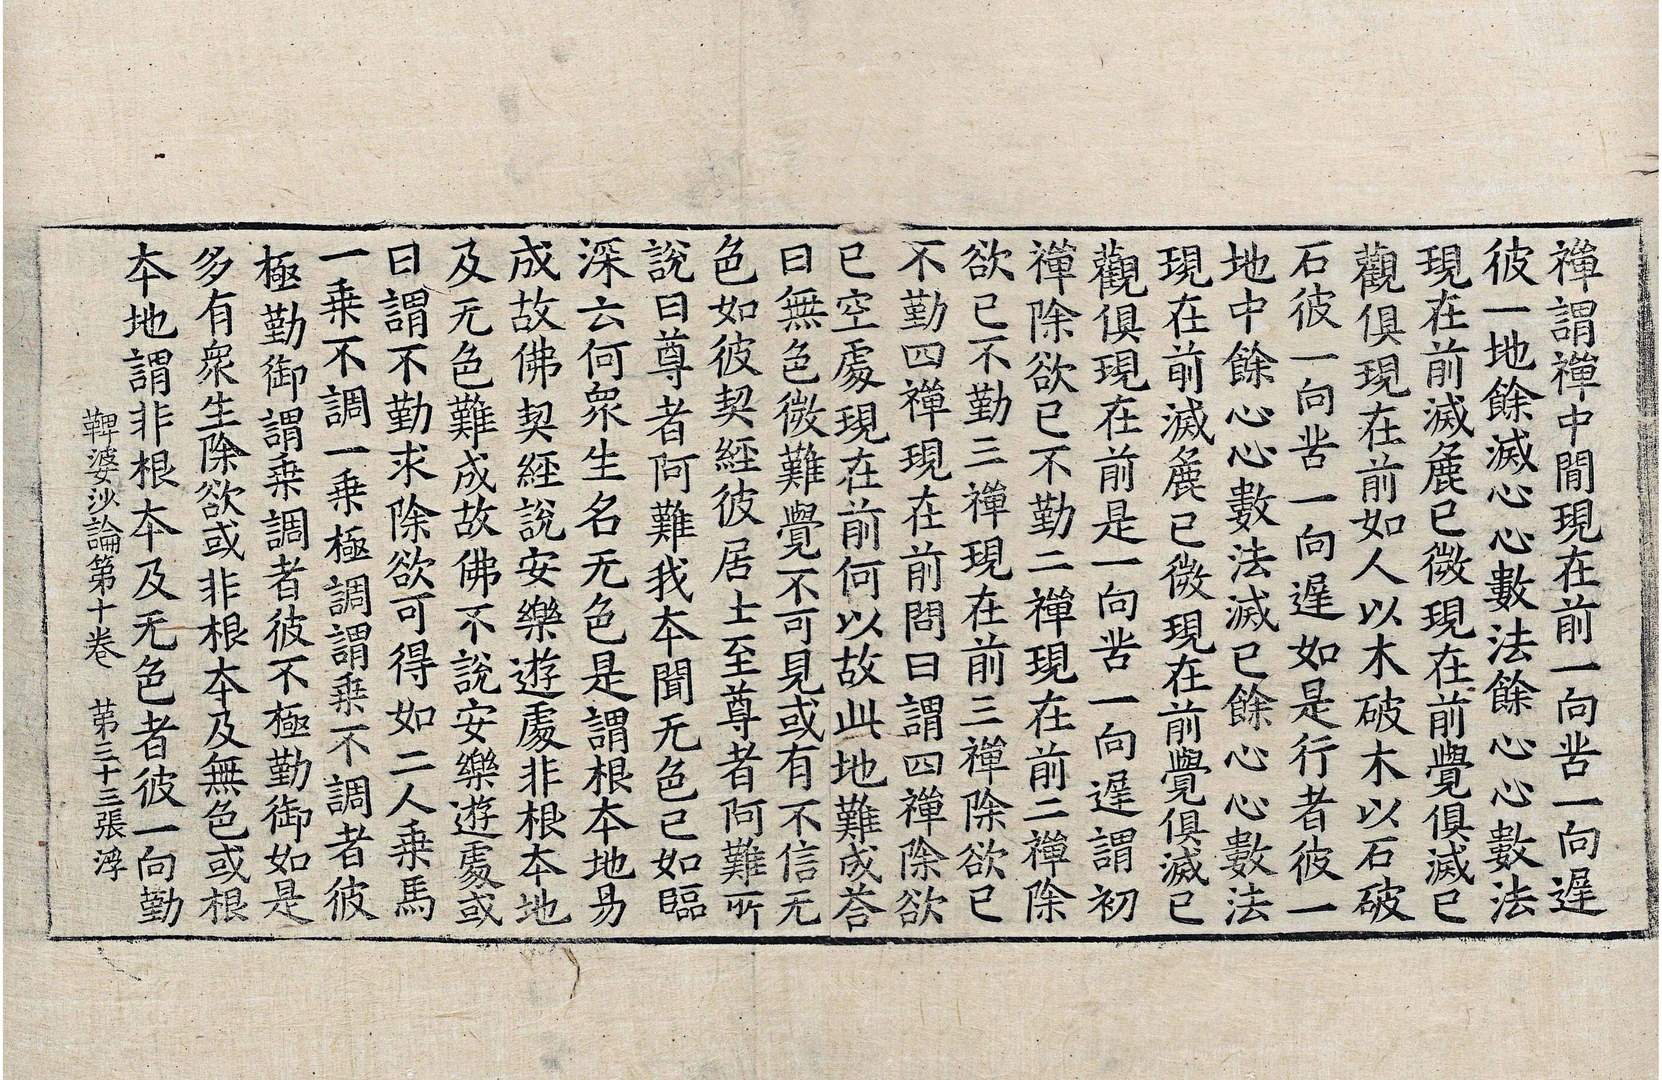 禪謂禪中間現在前一向苦一向遟
彼一地餘滅心心數法餘心心數法
現在前滅麁已微現在前覺俱滅已
觀俱現在前如人以木破木以石破
石彼一向苦一向遟如是行者彼一
地中餘心心數法滅已餘心心數法
現在前滅麁已微現在前覺俱滅已
觀俱現在前是一向苦一向遟謂初
禪除欲已不勤二禪現在前二禪除
欲已不勤三禪現在前三禪除欲已
不勤四禪現在前問曰謂四禪除欲
已空處現在前何以故此地難成荅
曰無色微難覺不可見或有不信无
色如彼契經彼居士至尊者阿難所
說曰尊者阿難我本聞无色已如臨
深云何衆生名无色是謂根本地易
成故佛契經說安樂遊處非根本地
及无色難成故佛不說安樂遊處或
曰謂不勤求除欲可得如二人乗馬
一乗不調一乗極調謂乗不調者彼
極勤御謂乗調者彼不極勤御如是
多有衆生除欲或非根本及無色或根
本地謂非根本及无色者彼一向勤
鞞婆沙論第十卷　第三十三張　浮